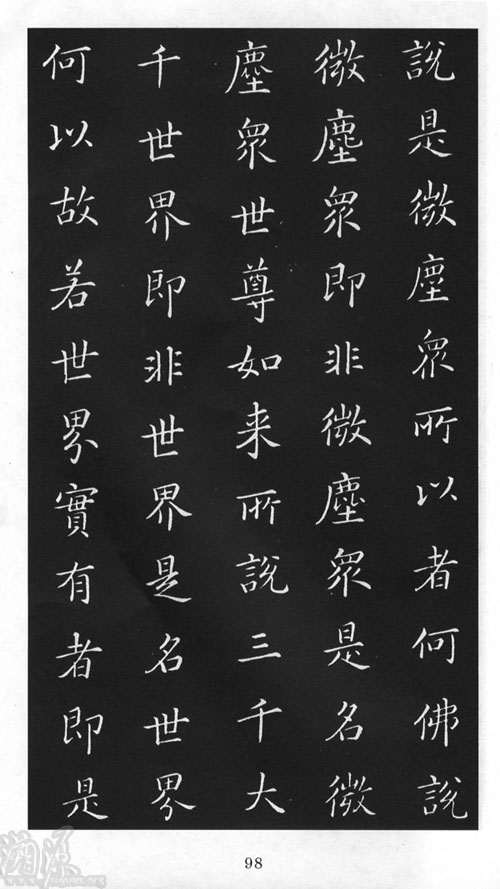 說是微塵衆所以者何佛說
微塵衆即非微塵衆是名微
塵衆世尊如来所說三千大
千世界即非世界是名世界
何以故若世界實有者即是
98